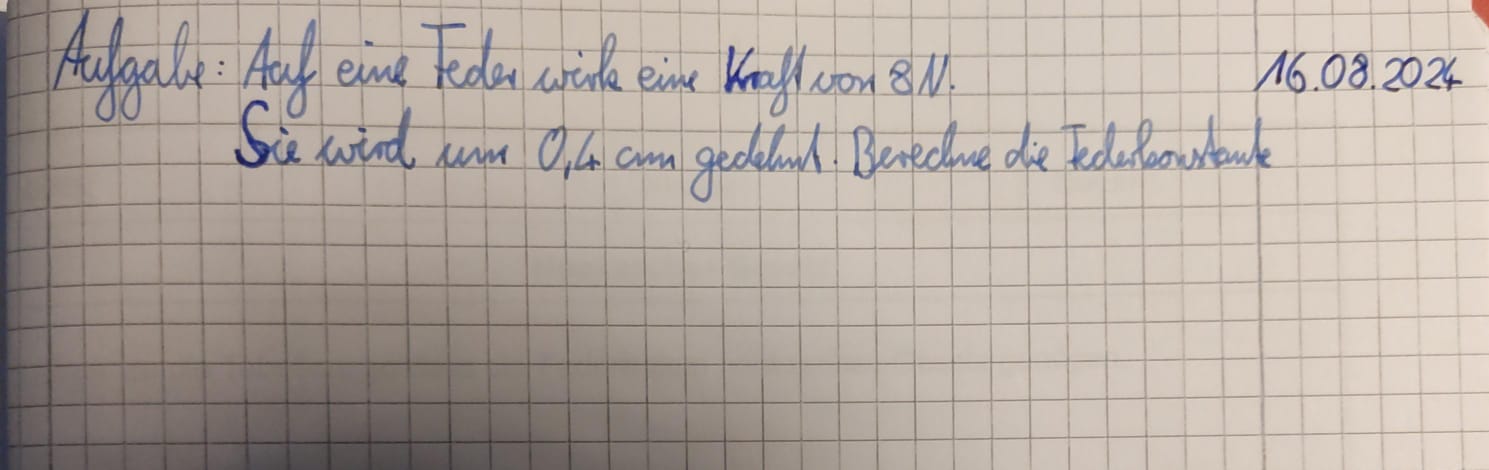 Aufgabe: Auf eine Feder wirke eine Kraft von 8 N. 16.08.2024
Sie wird um 0,4 cm gedehnt. Berechne die Federkonstante